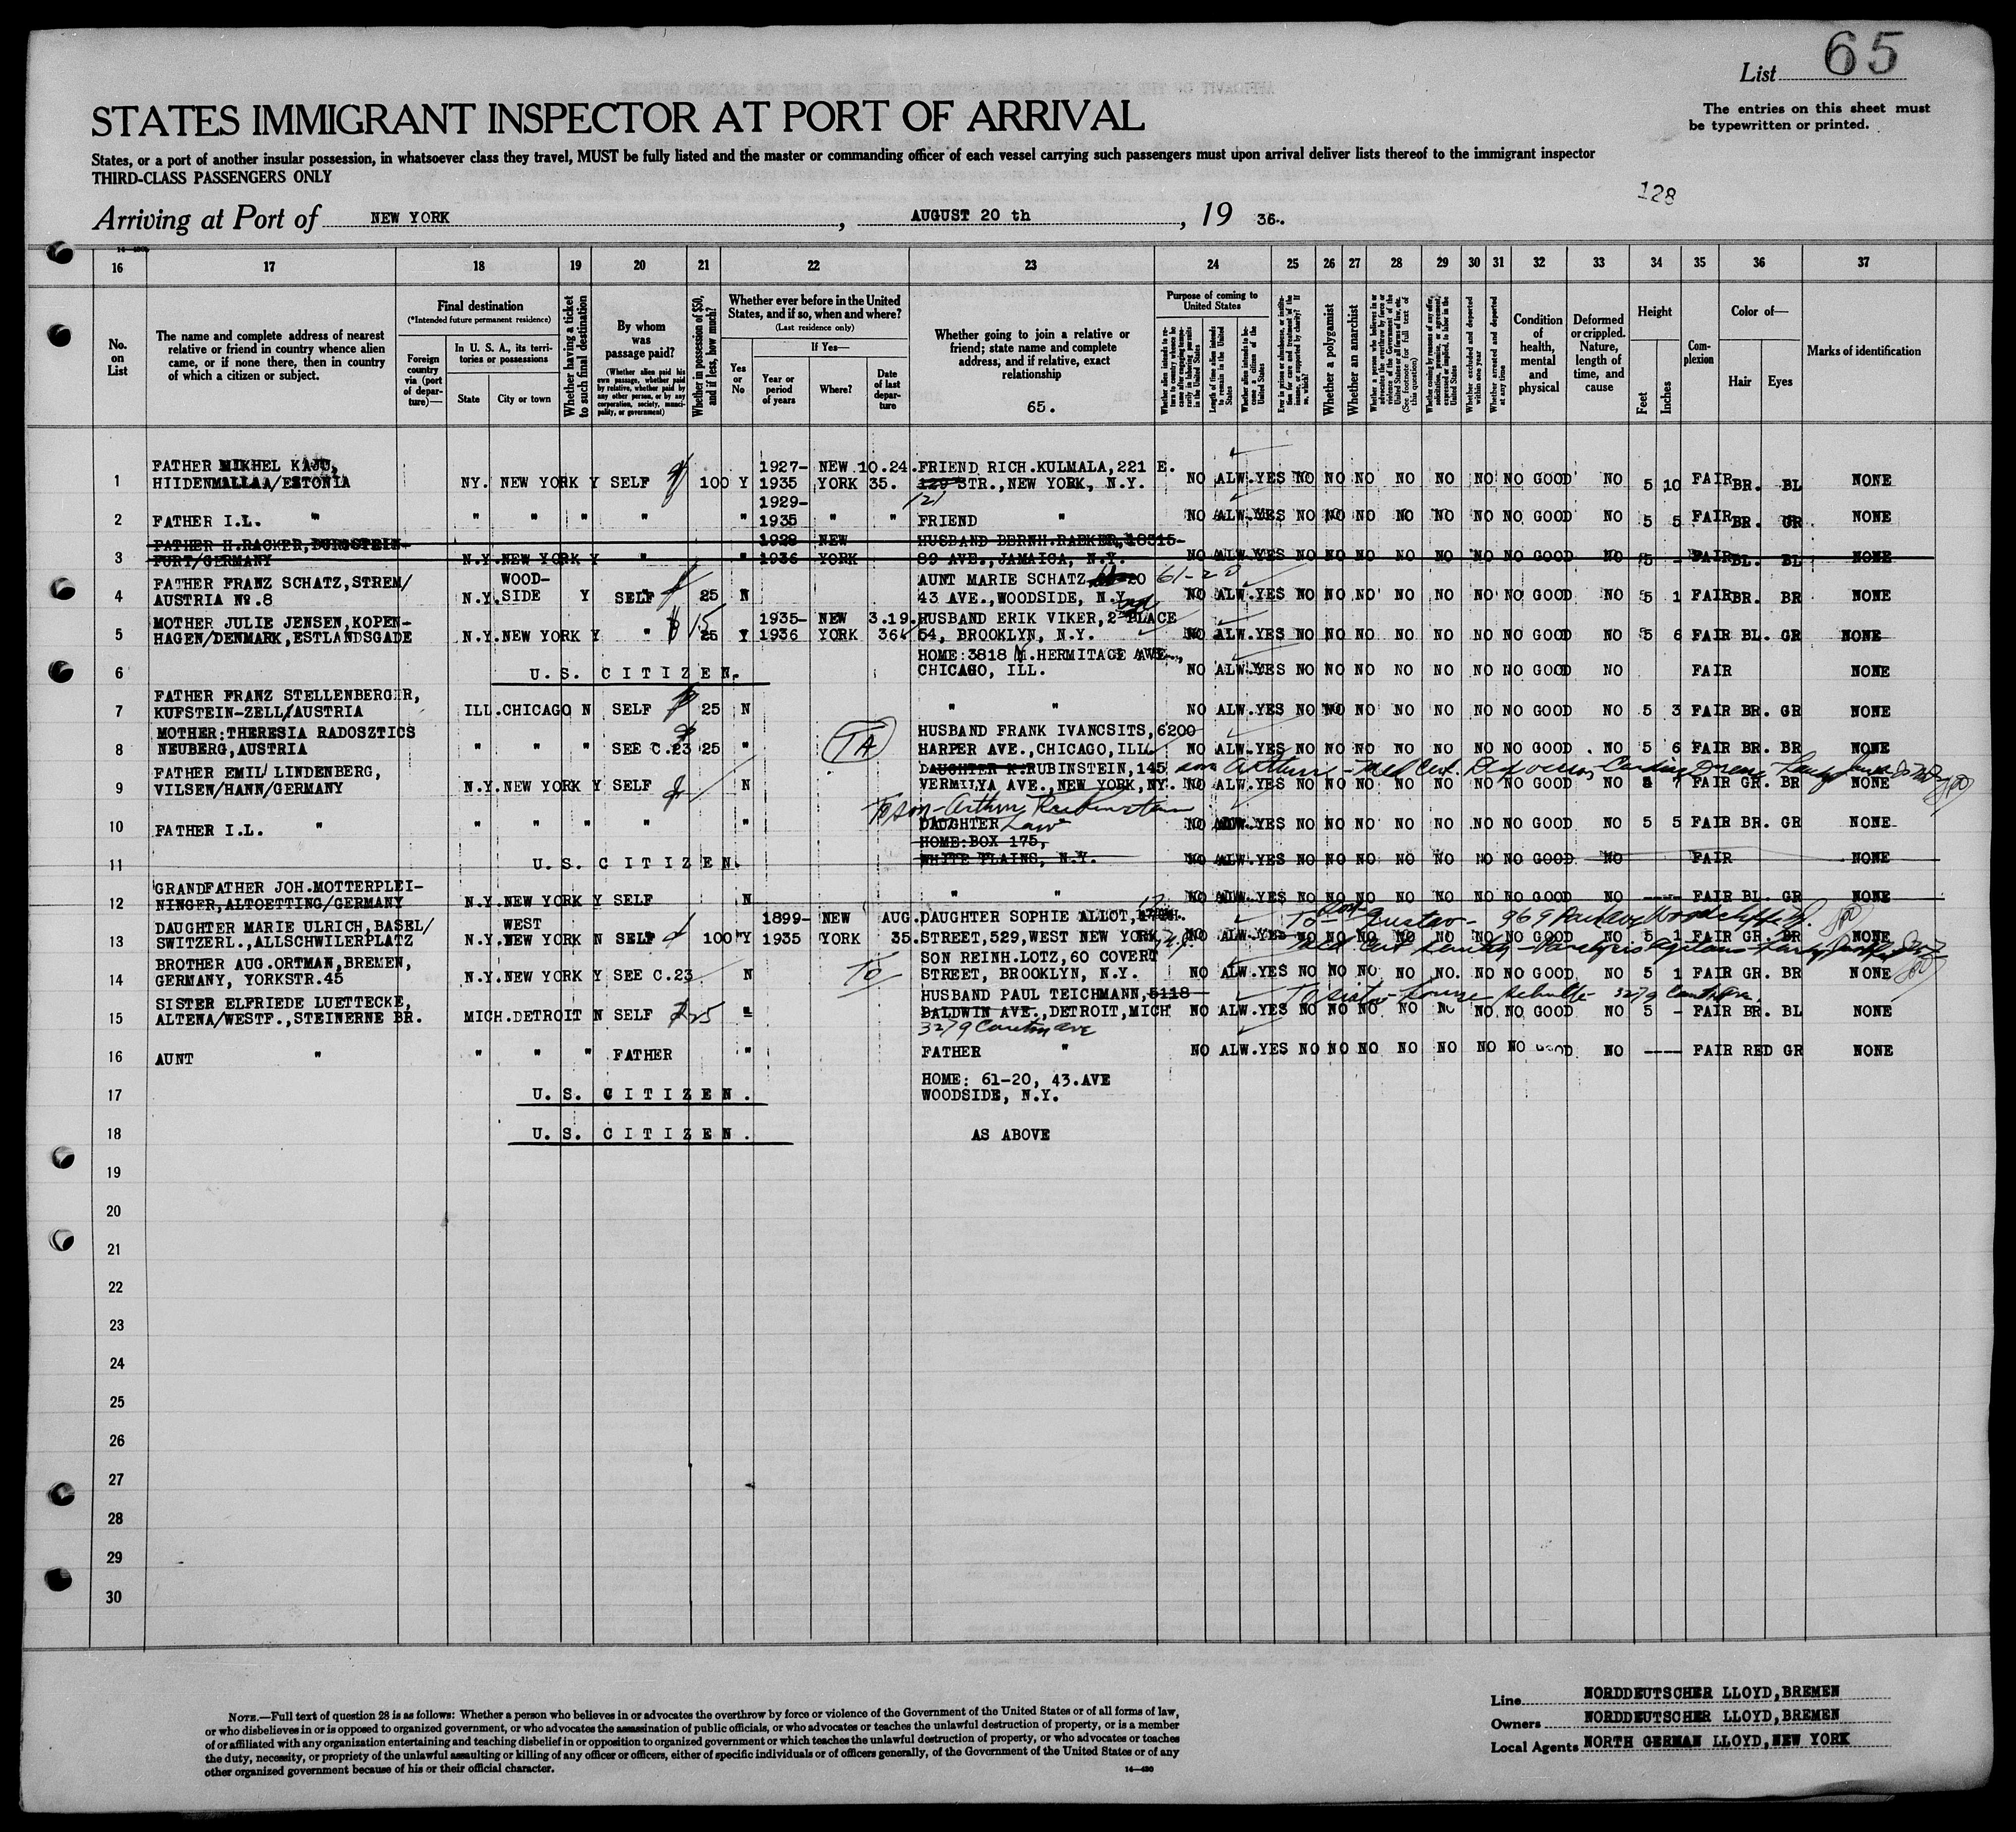 List 65
The entries on this sheet must
be typewritten or printed.
STATES IMMIGRANT INSPECTOR AT PORT OF ARRIVAL
States, or a port of another insular possession, in whatsoever class they travel, MUST be fully listed and the master or commanding officer of each vessel carrying such passengers must upon arrival deliver lists thereof to the immigrant inspector
THIRD-CLASS PASSENGERS ONLY
128
Arriving at Port of NEW YORK, AUGUST 20 th, 19 36.
16 17 18 19 20 21 22 23 24 25 26 27 28 29 30 31 32 33 34 35 36 37
No. on List
The name and complete address of nearest relative or friend in country whence alien came, or if none there, then in country of which a citizen or subject.
Final destination
(*Intended future permanent residence)
Foreign country via (port of departure)—
In U. S. A., its territories or possessions
State
City or town
Whether having a ticket to such final destination
By whom was passage paid?
(Whether alien paid his own passage, whether paid by relative, whether paid by any other person, or by any corporation, society, municipality, or government)
Whether in possession of $50, and if less, how much?
Whether ever before in the United States, and if so, when and where?
(Last residence only)
Yes or No
If Yes—
Year or period of years
Where?
Date of last departure
Whether going to join a relative or friend; state name and complete address, and if relative, exact relationship
65.
Purpose of coming to United States
Length of time alien intends to remain in the United States
Whether alien intends to become a citizen of the United States
Whether a polygamist
Whether an anarchist
Whether excluded and deported within one year
Whether arrested and deported at any time
Condition of health, mental and physical
Deformed or crippled. Nature, length of time, and cause
Height
Feet
Inches
Complexion
Color of—
Hair
Eyes
Marks of identification
FATHER MIKHEL KAJU, 1927- NEW 10.24. FRIEND RICH.KULMALA,221 E.
1 HIIDENMALLAA/ESTONIA NY. NEW YORK Y SELF 100 Y 1935 YORK 35. 120 STR.,NEW YORK, N.Y. NO ALW.YES NO NO NO NO NO NO NO GOOD NO 5 10 FAIR BR. BL NONE
1929- 121
2 FATHER I.L. " " " " " " 1935 " " FRIEND " NO ALW.YES NO NO NO NO NO NO NO GOOD NO 5 5 FAIR BR. GR NONE
FATHER H.RACKER,BURGSTEIN- 1928 NEW HUSBAND BERNH.RABKER,18315-
3 FURT/GERMANY N.Y.NEW YORK Y " " 1936 YORK 89 AVE.,JAMAICA, N.Y. NO ALW.YES NO NO NO NO NO NO NO GOOD NO 5 - FAIR BL. BL NONE
FATHER FRANZ SCHATZ,STREM/ WOOD- AUNT MARIE SCHATZ 20 61-20
4 AUSTRIA No.8 N.Y. SIDE Y SELF 25 N 43 AVE.,WOODSIDE, N.Y. NO ALW.YES NO NO NO NO NO NO NO GOOD NO 5 1 FAIR BR. BR NONE
MOTHER JULIE JENSEN,KOPEN- 15 1935- NEW 3.19. HUSBAND ERIK VIKER,2 PLACE
5 HAGEN/DENMARK,ESTLANDSGADE N.Y.NEW YORK Y " 25 Y 1936 YORK 36 54, BROOKLYN, N.Y. NO ALW.YES NO NO NO NO NO NO NO GOOD NO 5 6 FAIR BL. GR NONE
HOME:3818 N.HERMITAGE AVE.,
6 U. S. C I T I Z E N. CHICAGO, ILL. NO ALW.YES NO NO NO NO NO NO NO GOOD NO FAIR NONE
FATHER FRANZ STELLENBERGER,
7 KUFSTEIN-ZELL/AUSTRIA ILL.CHICAGO N SELF 25 N " " NO ALW.YES NO NO NO NO NO NO NO GOOD NO 5 3 FAIR BR. GR NONE
MOTHER:THERESIA RADOSZTICS HUSBAND FRANK IVANCSITS,6200
8 NEUBERG,AUSTRIA " " " SEE C.23 25 " TA HARPER AVE.,CHICAGO,ILL. NO ALW.YES NO NO NO NO NO NO NO GOOD NO 5 6 FAIR BR. BR NONE
FATHER EMIL LINDENBERG, DAUGHTER K.RUBINSTEIN,145 son Arthur - Med Cert.
9 VILSEN/HANN/GERMANY N.Y.NEW YORK Y SELF N VERMILYA AVE.,NEW YORK,NY. NO ALW.YES NO NO NO NO NO NO NO GOOD NO 7 FAIR GR. BR NONE
To son-Arthur Rubinstein
10 FATHER I.L. " " " " " " DAUGHTER Law NO ALW.YES NO NO NO NO NO NO NO GOOD NO 5 5 FAIR BR. GR NONE
HOME:BOX 175,
11 U. S. C I T I Z E N. WHITE PLAINS, N.Y. NO ALW.YES NO NO NO NO NO NO NO GOOD NO FAIR NONE
GRANDFATHER JOH.MOTTERPLEI-
12 NINGER,ALTOETTING/GERMANY N.Y.NEW YORK Y SELF N " " NO ALW.YES NO NO NO NO NO NO NO GOOD NO ---- FAIR BL. GR NONE
DAUGHTER MARIE ULRICH,BASEL/ WEST 1899- NEW AUG. DAUGHTER SOPHIE ALLOT, To Son- Gustav - 969
13 SWITZERL.,ALLSCHWILERPLATZ N.Y.NEW YORK N SELF 100 Y 1935 YORK 35. STREET,529,WEST NEW YORK NO ALW.YES NO NO NO NO NO NO NO GOOD NO 5 1 FAIR GR. BR NONE
BROTHER AUG.ORTMAN,BREMEN, SON REINH.LOTZ,60 COVERT Med Cert
14 GERMANY, YORKSTR.45 N.Y.NEW YORK Y SEE C.23 N STREET, BROOKLYN, N.Y. NO ALW.YES NO NO NO NO NO. NO NO GOOD NO 5 1 FAIR GR. BR NONE
SISTER ELFRIEDE LUETTECKE, HUSBAND PAUL TEICHMANN,5118 To sister Louise Schulte 3279
15 ALTENA/WESTF.,STEINERNE BR. MICH.DETROIT N SELF 25 " BALDWIN AVE.,DETROIT,MICH NO ALW.YES NO NO NO NO NO NO NO GOOD NO 5 - FAIR BR. BL NONE
3279 Ave
16 AUNT " " " " FATHER " FATHER " NO ALW.YES NO NO NO NO NO NO NO GOOD NO ---- FAIR RED GR NONE
HOME: 61-20, 43.AVE
17 U. S. C I T I Z E N . WOODSIDE, N.Y.
18 U. S. C I T I Z E N . AS ABOVE
19
20
21
22
23
24
25
26
27
28
29
30
Line NORDDEUTSCHER LLOYD,BREMEN
Owners NORDDEUTSCHER LLOYD,BREMEN
Local Agents NORTH GERMAN LLOYD,NEW YORK
NOTE.—Full text of question 28 is as follows: Whether a person who believes in or advocates the overthrow by force or violence of the Government of the United States or of all forms of law,
or who disbelieves in or is opposed to organized government, or who advocates the assassination of public officials, or who advocates or teaches the unlawful destruction of property, or is a member
of or affiliated with any organization entertaining and teaching disbelief in or opposition to organized government or which teaches the unlawful destruction of property, or who advocates or teaches
the duty, necessity, or propriety of the unlawful assaulting or killing of any officer or officers, either of specific individuals or of officers generally, of the Government of the United States or of any
other organized government because of his or their official character.
14—430